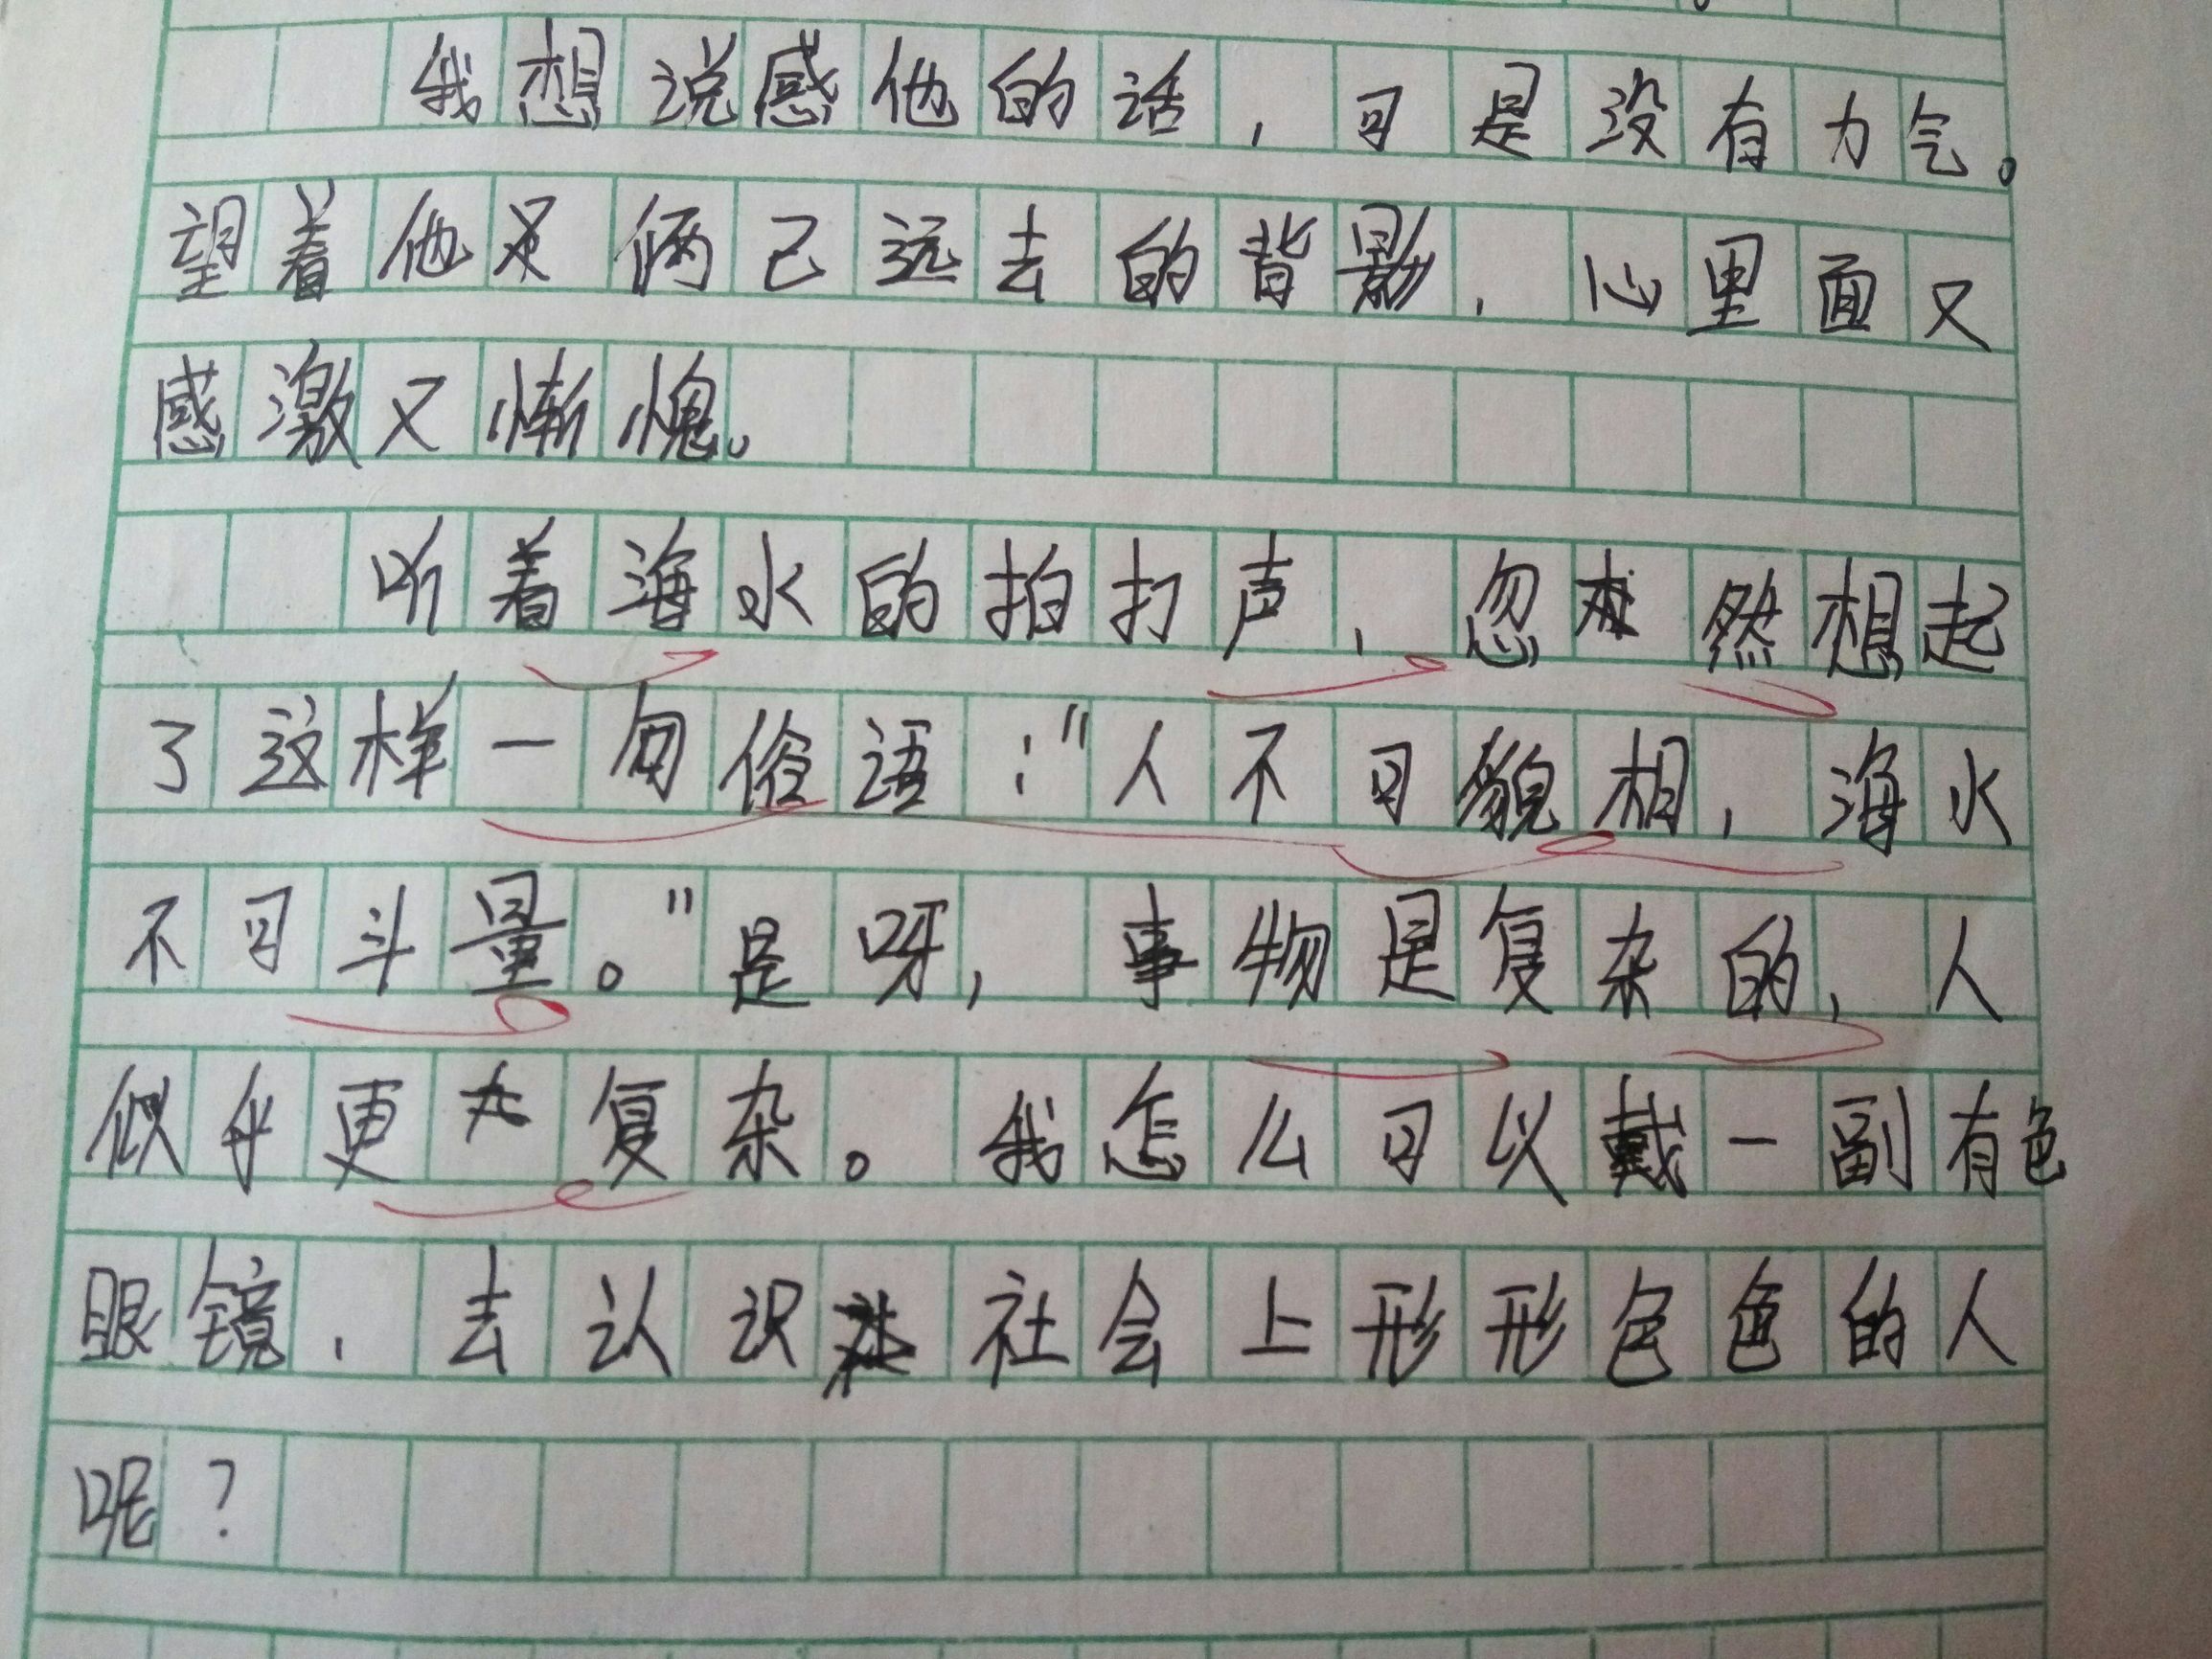 我想说感他的话，可是没有力气。
望着他俩已远去的背影，心里面又
感激又惭愧。
听着海水的拍打声，忽然想起
了这样一句俗语："人不可貌相，海水
不可斗量。"是呀，事物是复杂的，人
似乎更复杂。我怎么可以戴一副有色
眼镜，去认识社会上形形色色的人
呢？